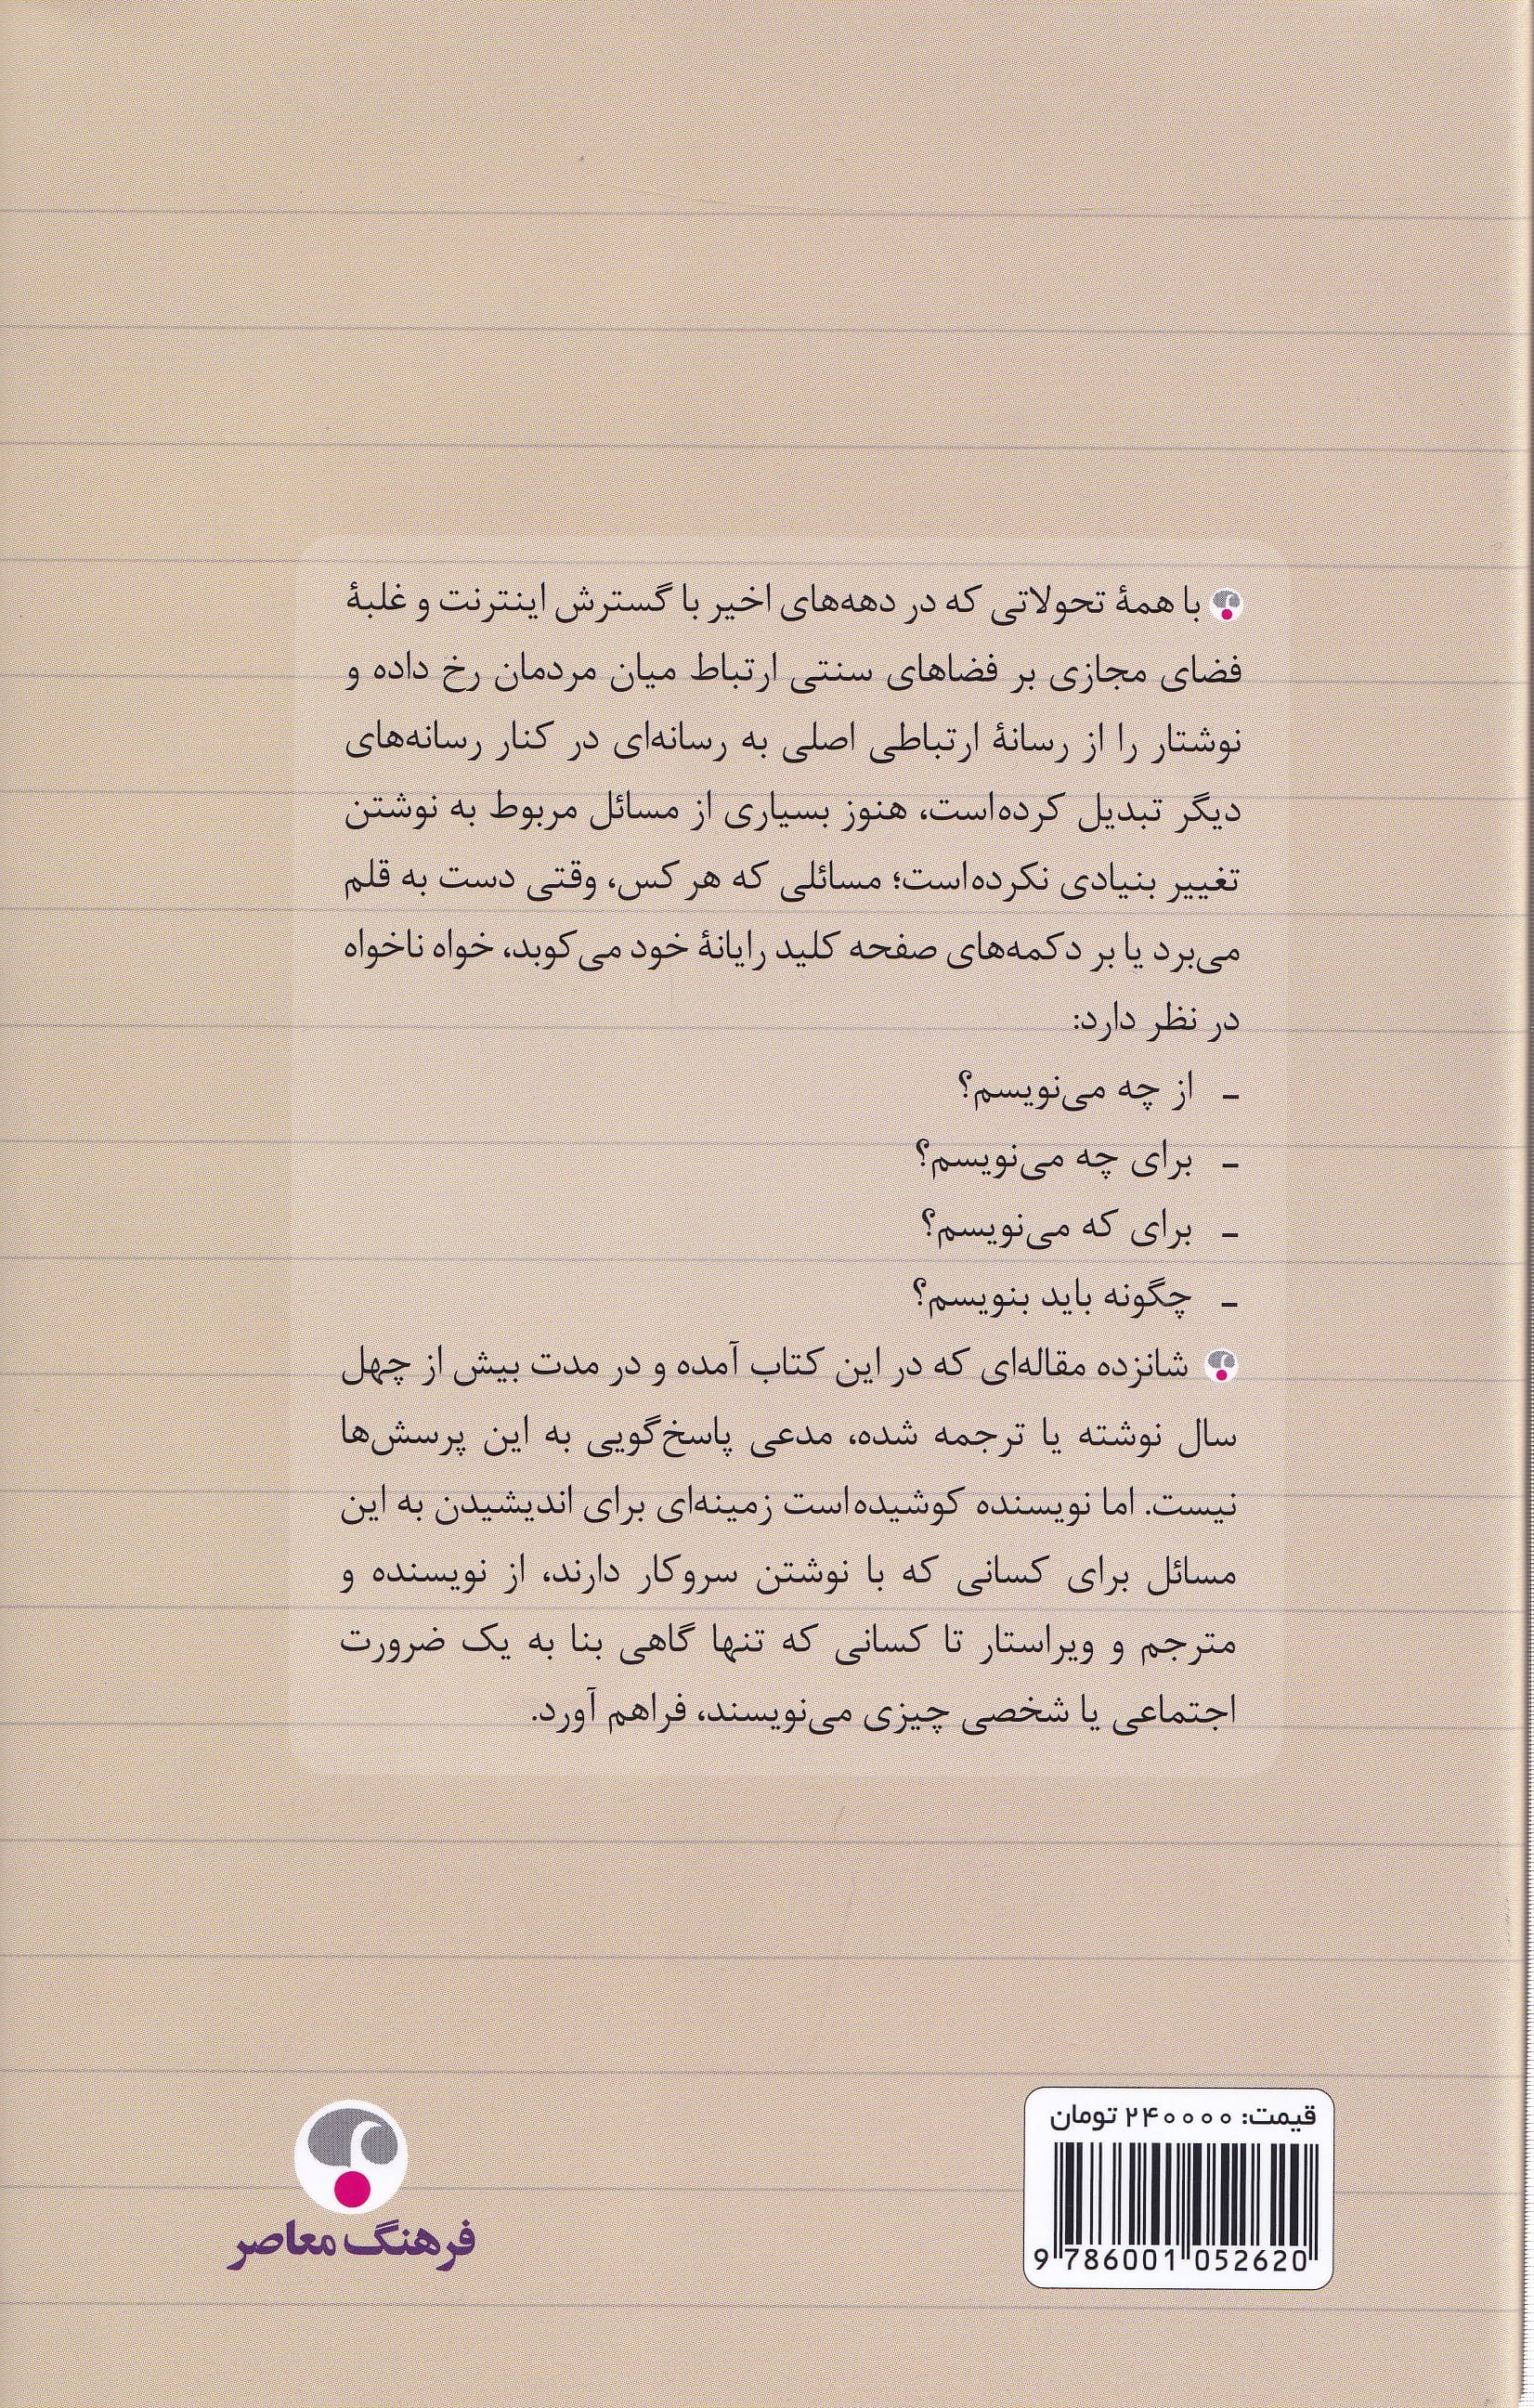 با همهٔ تحولاتی که در دهه‌های اخیر با گسترش اینترنت و غلبهٔ
فضای مجازی بر فضاهای سنتی ارتباط میان مردمان رخ داده و
نوشتار را از رسانهٔ ارتباطی اصلی به رسانه‌ای در کنار رسانه‌های
دیگر تبدیل کرده‌است، هنوز بسیاری از مسائل مربوط به نوشتن
تغییر بنیادی نکرده‌است؛ مسائلی که هر کس، وقتی دست به قلم
می‌برد یا بر دکمه‌های صفحه کلید رایانهٔ خود می‌کوبد، خواه ناخواه
در نظر دارد:
ـ از چه می‌نویسم؟
ـ برای چه می‌نویسم؟
ـ برای که می‌نویسم؟
ـ چگونه باید بنویسم؟
شانزده مقاله‌ای که در این کتاب آمده و در مدت بیش از چهل
سال نوشته یا ترجمه شده، مدعی پاسخ‌گویی به این پرسش‌ها
نیست. اما نویسنده کوشیده‌است زمینه‌ای برای اندیشیدن به این
مسائل برای کسانی که با نوشتن سروکار دارند، از نویسنده و
مترجم و ویراستار تا کسانی که تنها گاهی بنا به یک ضرورت
اجتماعی یا شخصی چیزی می‌نویسند، فراهم آورد.
قیمت: ۲۴۰۰۰۰ تومان
9 786001 052620
فرهنگ معاصر